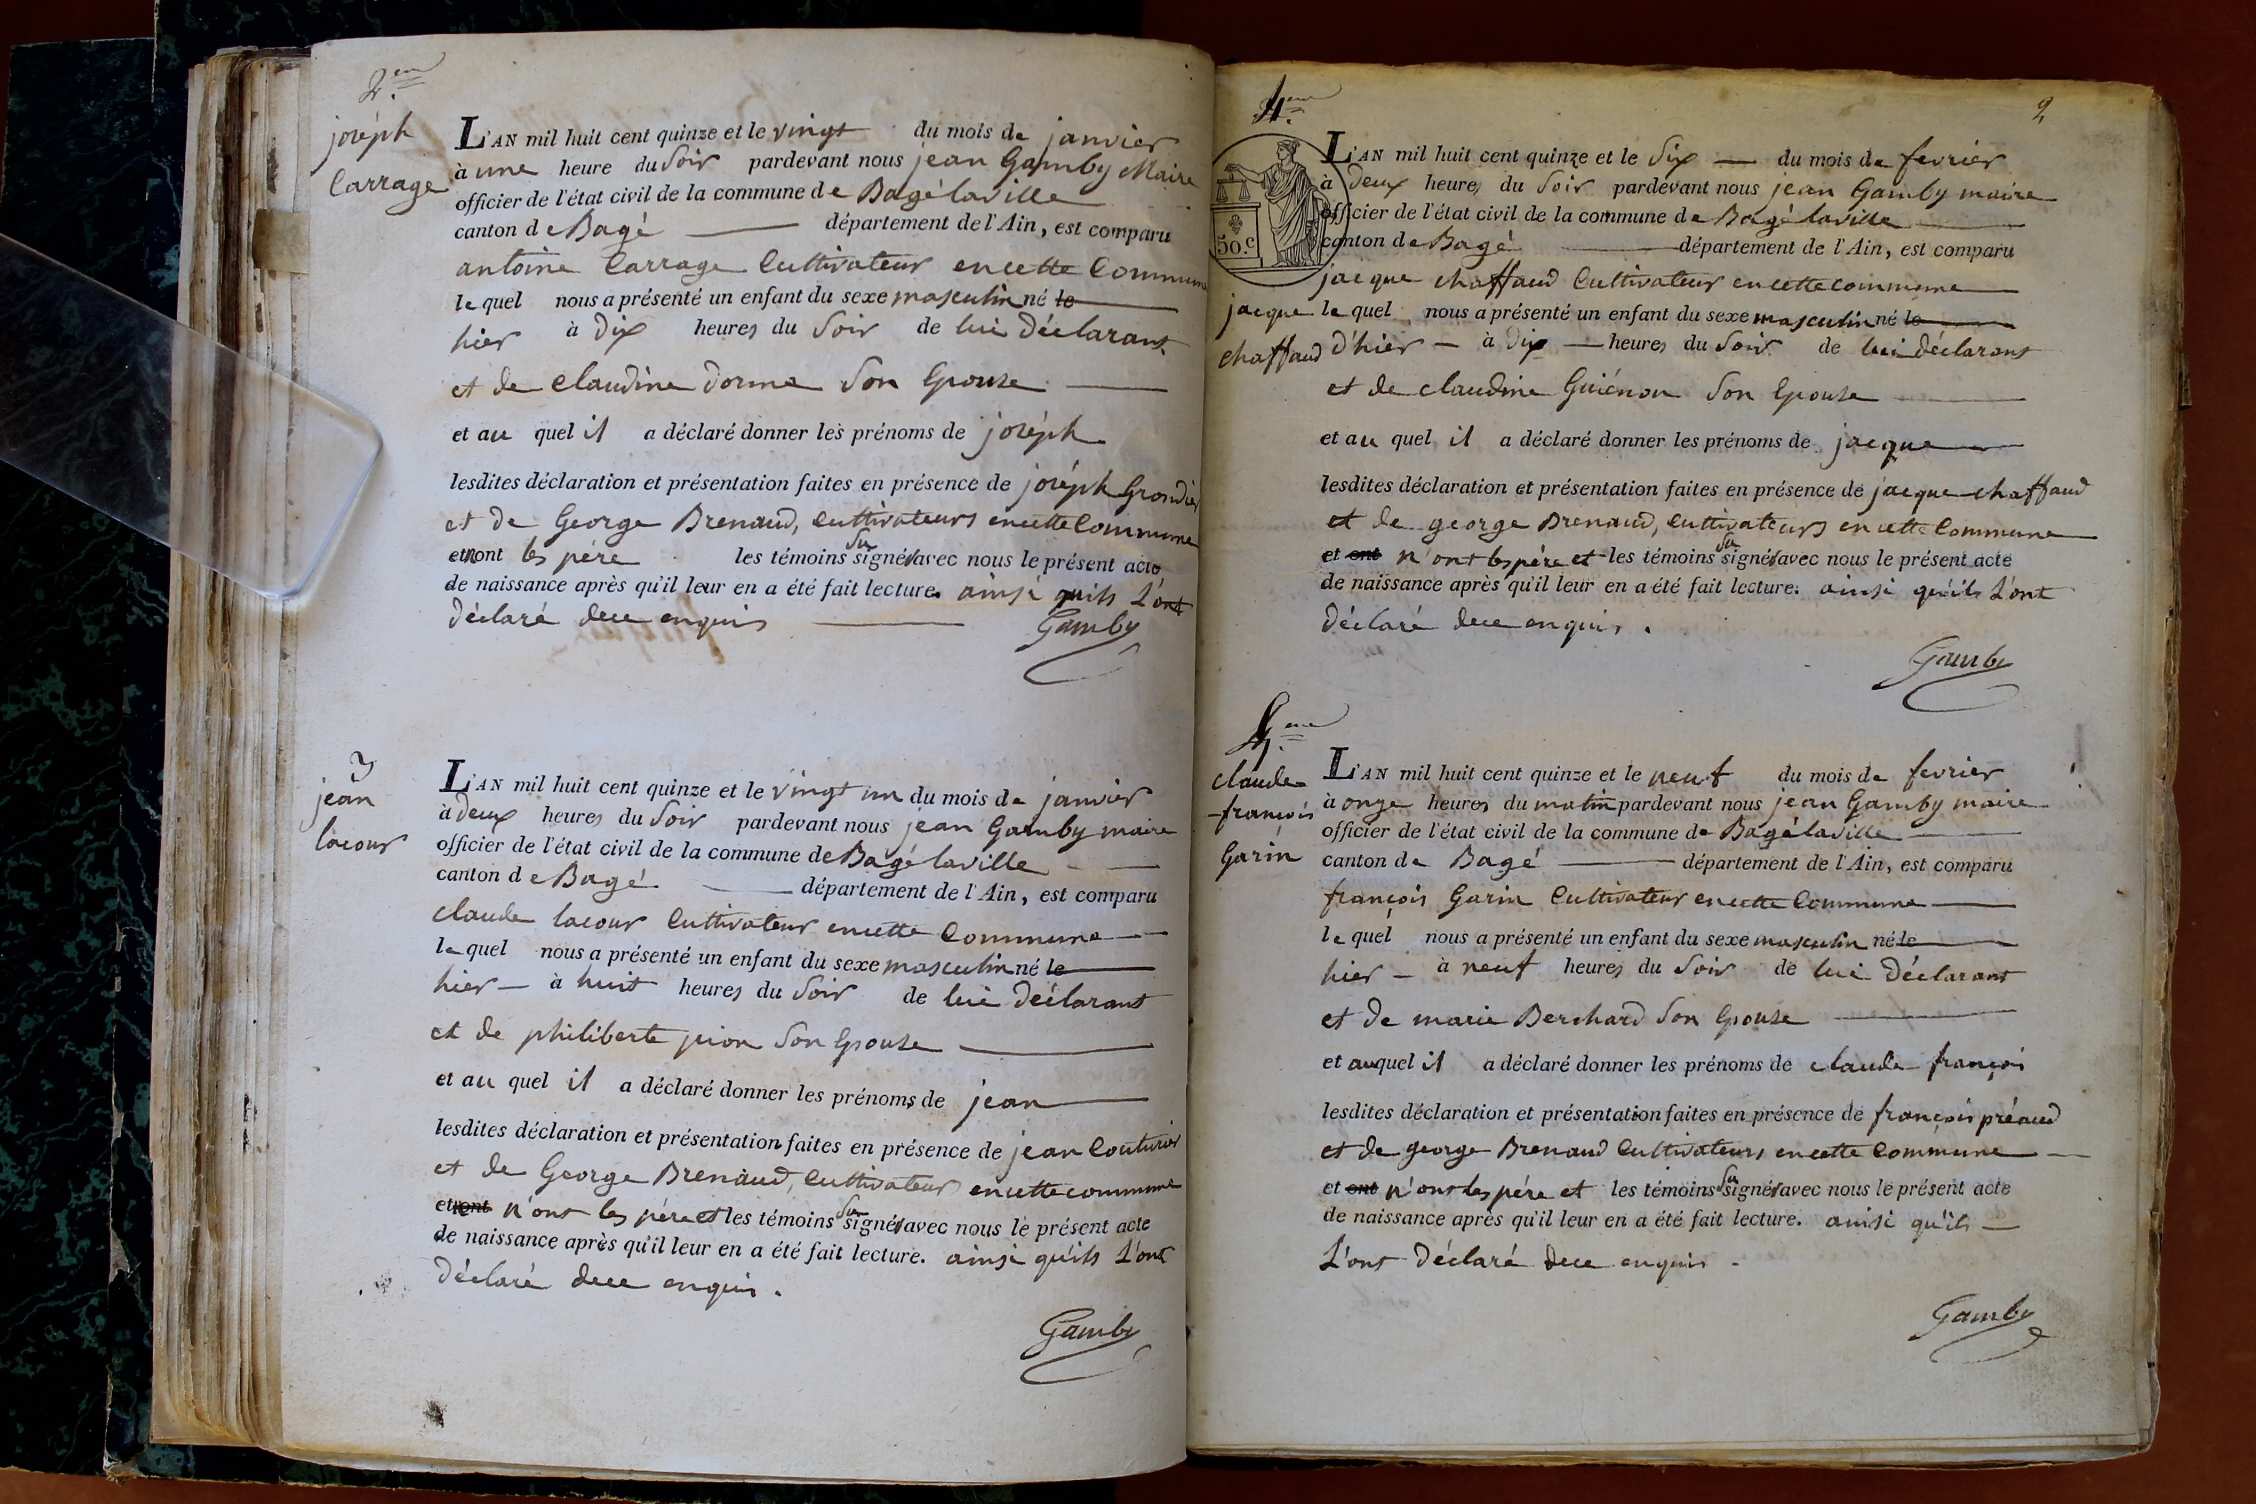 2.eme
joséph
Carrage
L'AN mil huit cent quinze et le vingt du mois de janvier
à une heure du soir pardevant nous jean Gamby Maire
officier de l'état civil de la commune de Bagé laville
canton de Bagé département de l'Ain, est comparu
antoine Carrage Cultivateur en cette Commune
le quel nous a présenté un enfant du sexe masculin né le
hier à dix heures du soir de lui déclarant
et de claudine dorme son Epouse
et au quel il a déclaré donner les prénoms de joséph
lesdites déclaration et présentation faites en présence de joséph Grondier
et de George Brenaud, Cultivateurs en cette Commune
et nont les pére les témoins su signér avec nous le présent acte
de naissance après qu'il leur en a été fait lecture. ainsi quils L'ont
déclaré dece enquis
Gamby
3
jean
lacour
L'AN mil huit cent quinze et le vingt un du mois de janvier
à deux heures du soir pardevant nous jean Gamby maire
officier de l'état civil de la commune de Bagé laville
canton de Bagé département de l'Ain, est comparu
claude lacour Cultivateur en cette Commune
le quel nous a présenté un enfant du sexe masculin né le
hier à huit heures du soir de lui déclarant
et de philiberte pion son Epouse
et au quel il a déclaré donner les prénoms de jean
lesdites déclaration et présentation faites en présence de jean Couturier
et de George Brenaud, Cultivateur en cette commune
et ont n'ont les pére et les témoins su signér avec nous le présent acte
de naissance après qu'il leur en a été fait lecture. ainsi qu'ils L'ont
déclaré dece enquis.
Gamby
4.eme
2
50.c
jacque
chaffaud
L'AN mil huit cent quinze et le six du mois de fevrier
à deux heures du soir pardevant nous jean Gamby maire
officier de l'état civil de la commune de Bagé laville
canton de Bagé département de l'Ain, est comparu
jacque chaffaud Cultivateur en cette commune
le quel nous a présenté un enfant du sexe masculin né le
d'hier à dix heures du soir de lui déclarant
et de claudine Guiénon son Epouse
et au quel il a déclaré donner les prénoms de jacque
lesdites déclaration et présentation faites en présence de jacque chaffaud
et de george Brenaud, Cultivateurs en cette Commune
et ont n'ont les pére et les témoins su signér avec nous le présent acte
de naissance après qu'il leur en a été fait lecture. ainsi qu'ils L'ont
déclaré dece enquis.
Gamby
5.eme
claude
françois
Garin
L'AN mil huit cent quinze et le neuf du mois de fevrier
à onze heures du matin pardevant nous jean Gamby maire
officier de l'état civil de la commune de Bagé laville
canton de Bagé département de l'Ain, est comparu
françois Garin Cultivateur en cette Commune
le quel nous a présenté un enfant du sexe masculin né le
hier à neuf heures du soir de lui déclarant
et de marie Berchard son Epouse
et auquel il a déclaré donner les prénoms de claude françois
lesdites déclaration et présentation faites en présence de françois préaud
et de george Brenaud Cultivateurs en cette Commune
et ont n'ont les pére et les témoins su signér avec nous le présent acte
de naissance après qu'il leur en a été fait lecture. ainsi qu'ils
L'ont déclaré dece enquis.
Gamby